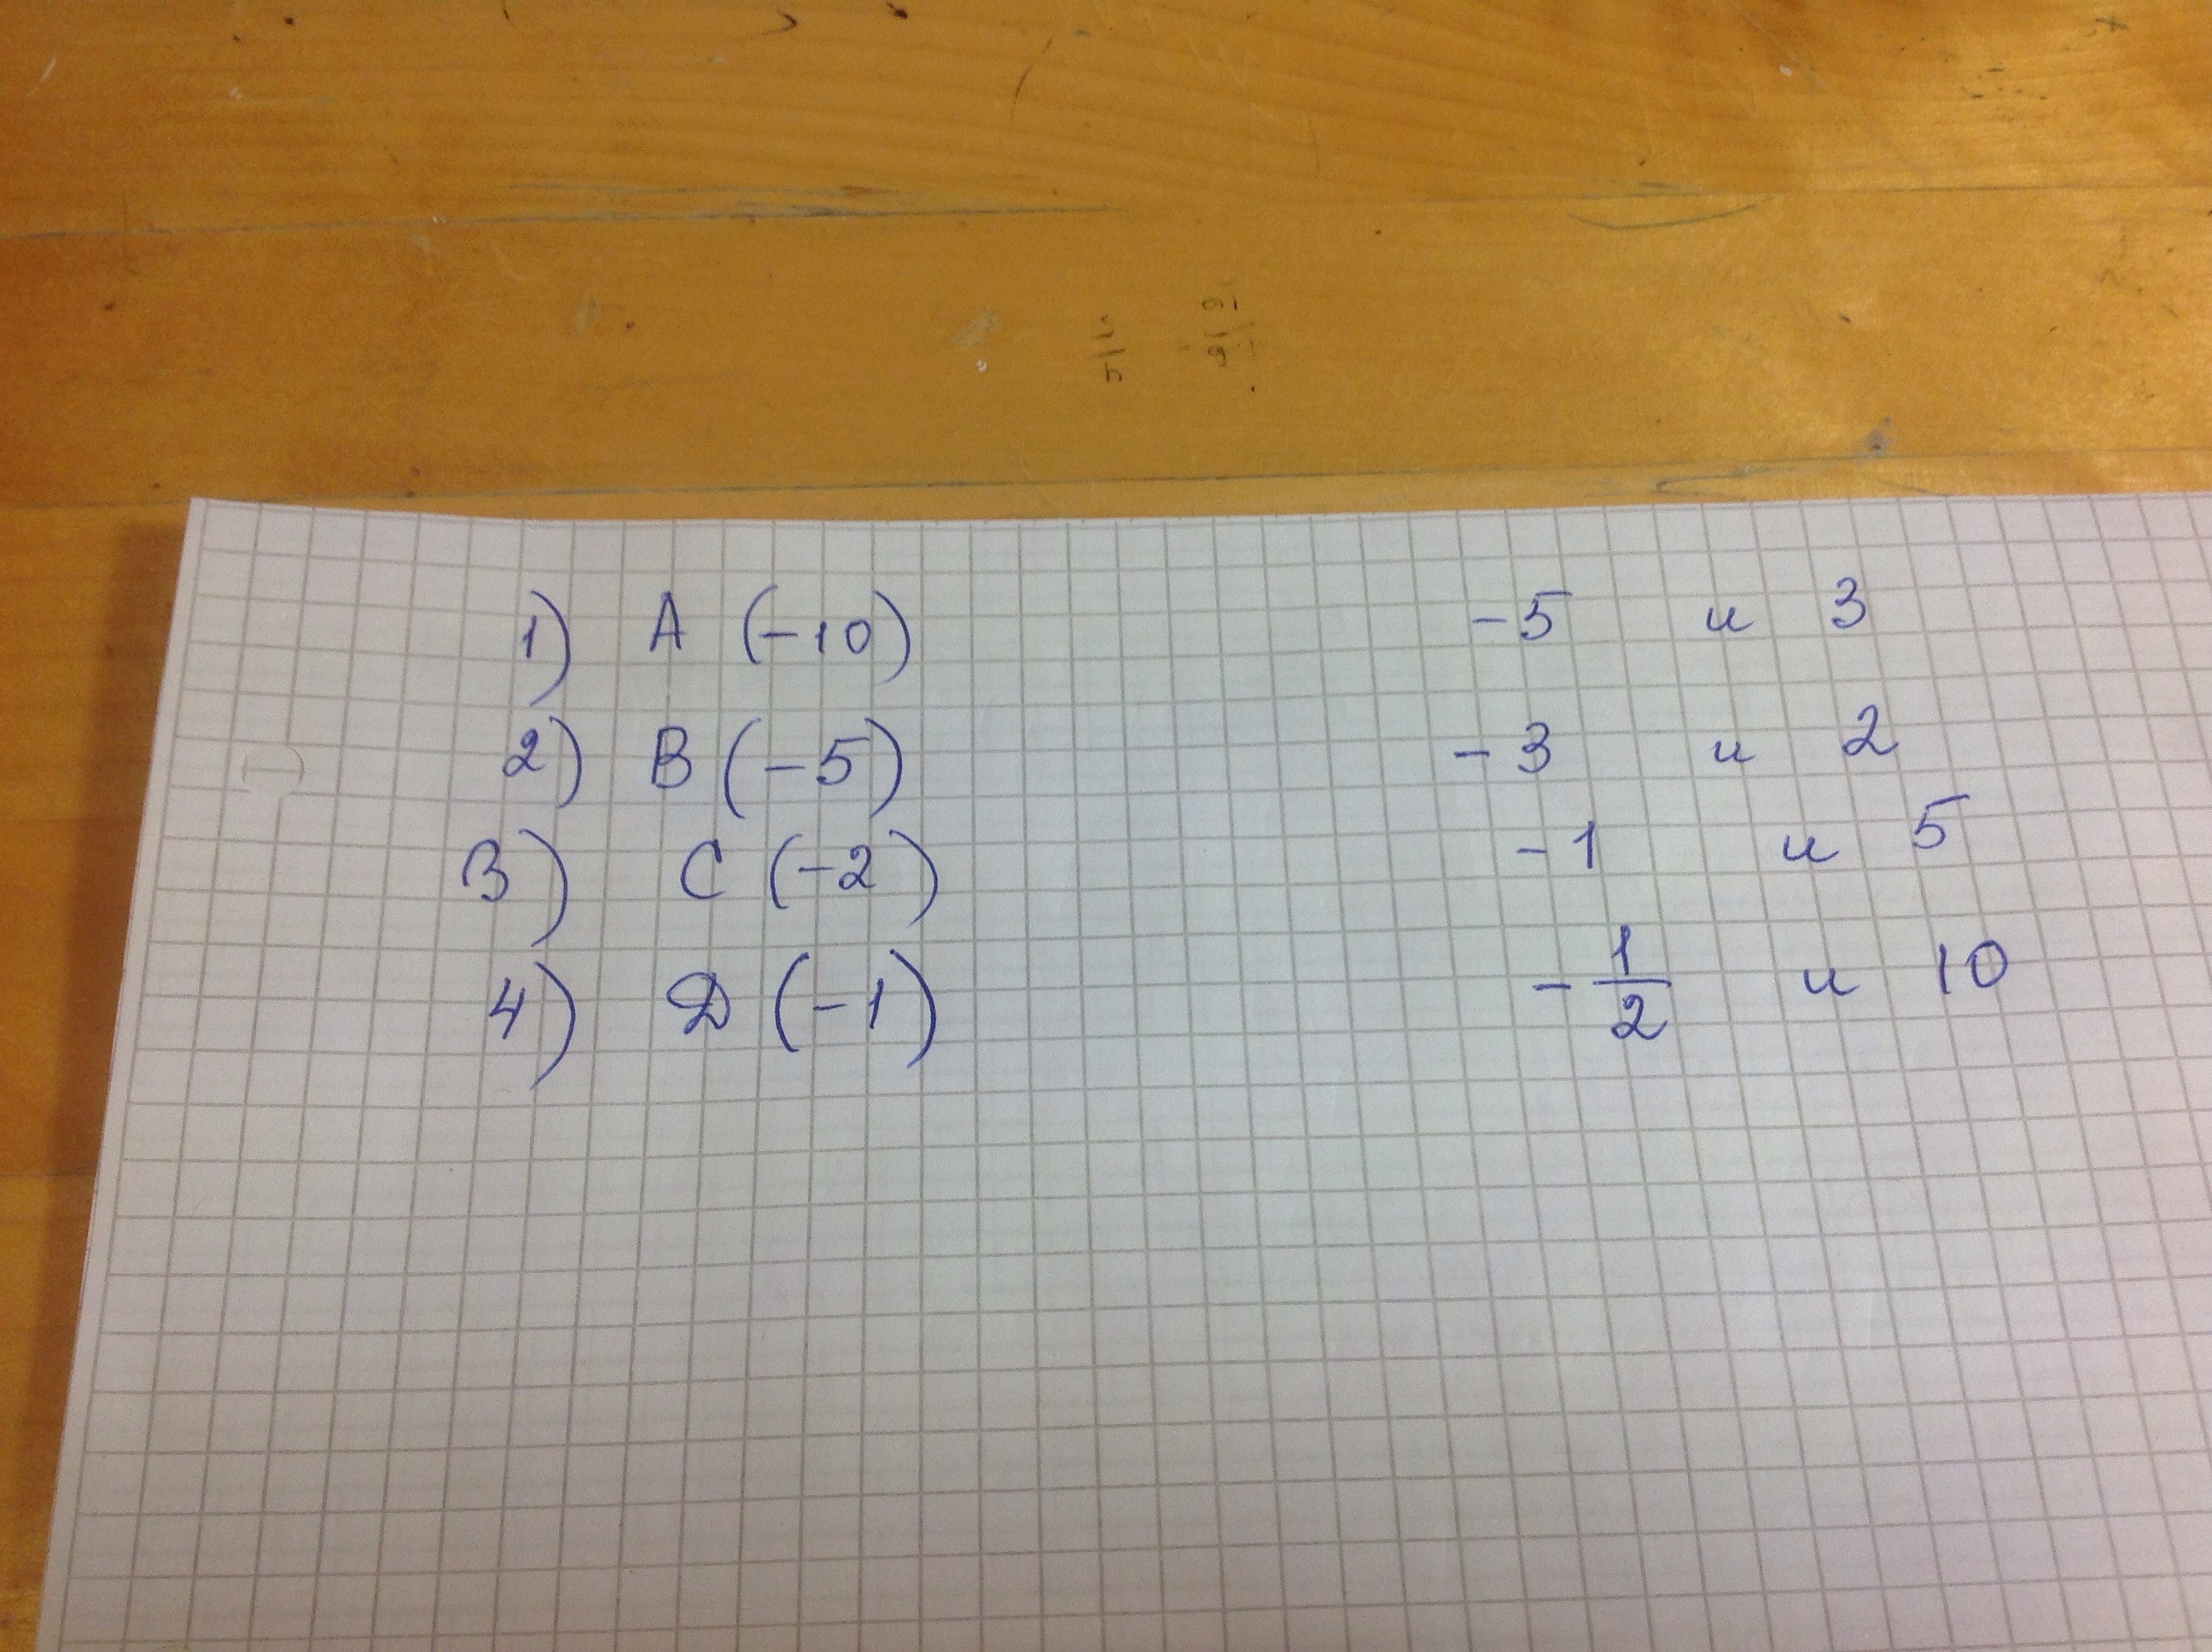 1) A (-10) -5 и 3
2) B (-5) -3 и 2
3) C (-2) -1 и 5
4) D (-1) -1/2 и 10